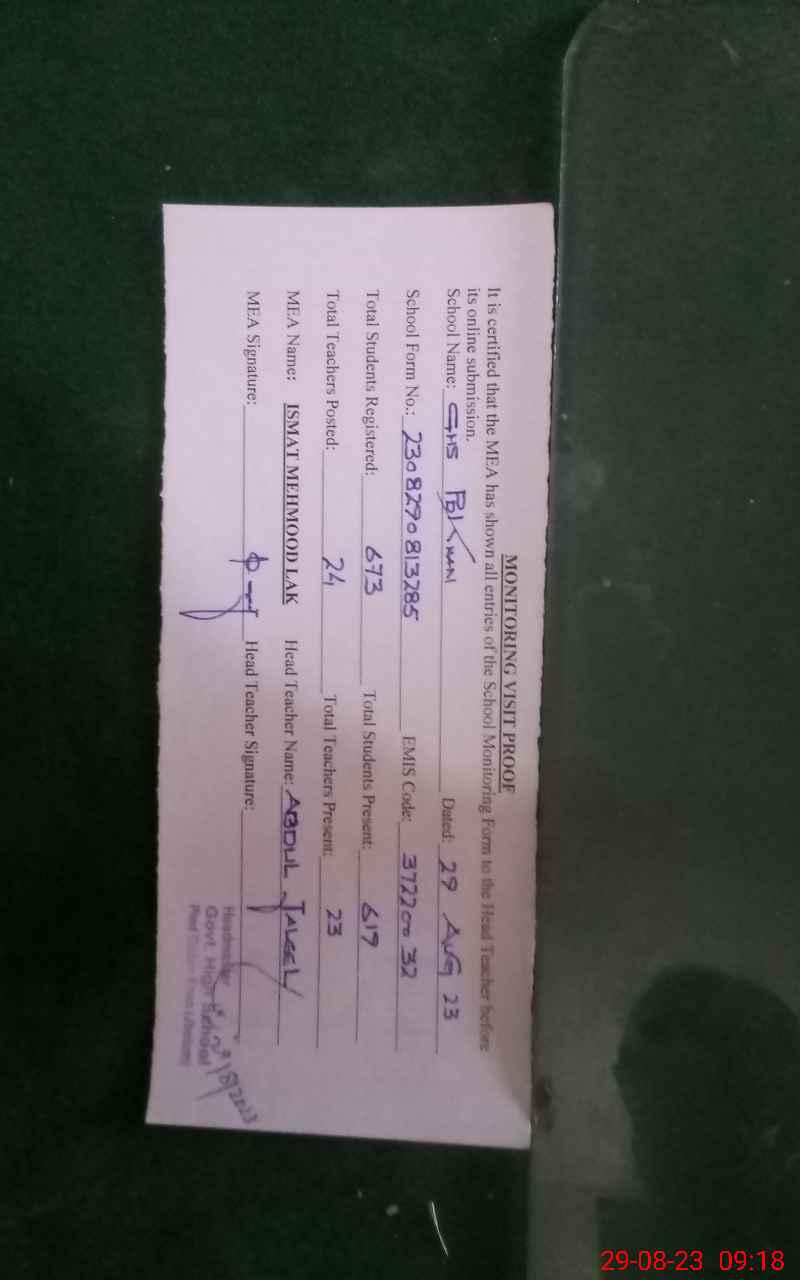 MONITORING VISIT PROOF
It is certified that the MEA has shown all entries of the School Monitoring Form to the Head Teacher before
its online submission.
School Name: GHS PD Khan Dated: 29 AUG 23
School Form No.: 2308290813285 EMIS Code: 37220032
Total Students Registered: 673 Total Students Present: 619
Total Teachers Posted: 24 Total Teachers Present: 23
MEA Name: ISMAT MEHMOOD LAK Head Teacher Name: ABDUL JALEEL
MEA Signature: Head Teacher Signature:
Headmaster
Govt. High School
29/8/2023
29-08-23 09:18